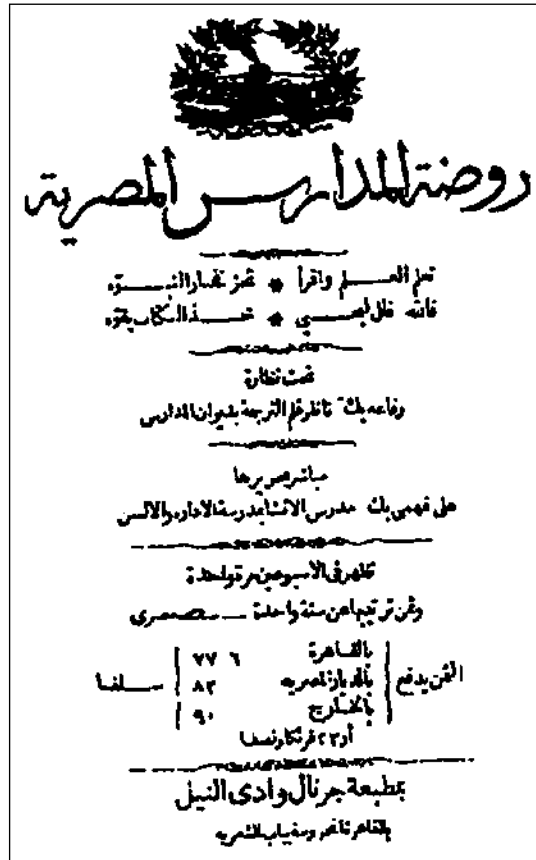 روضة المدارس المصرية
تعلم العلم واقرأ * تحز فخار النبوّه
فالله قال ليحيى * خذ الكتاب بقوّه
تحت نظارة
رفاعه بك ناظر قلم الترجمة بديوان المدارس
مباشر تحريرها
على فهمى بك مدرس الانشا بمدرسة الاداره والالسن
تظهر فى الاسبوعين مرة واحدة
وثمن ترتيبها عن سنة واحدة مصرى
الثمن يدفع سلفا
بالقاهرة ٦ ٧٧
بالديار المصريه ٨٣
بالخارج ٩٠
أو ٢٣ فرنكا ونصفا
بمطبعة جرنال وادى النيل
بالقاهرة بباب الشعريه